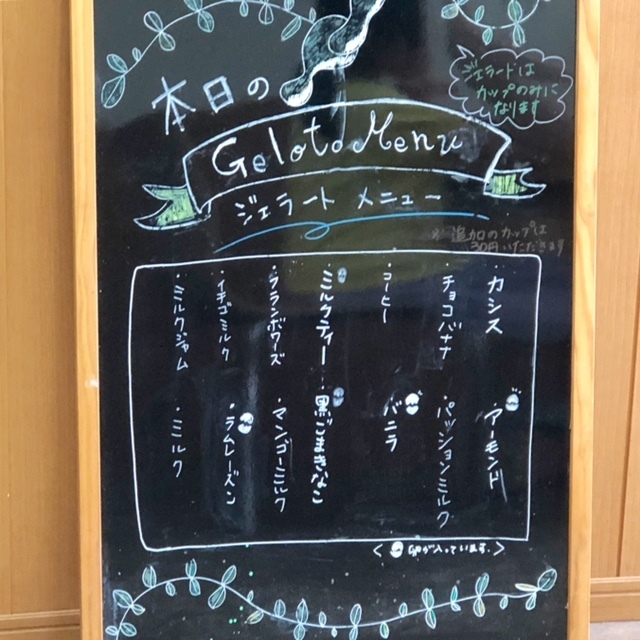 本日の
Geloto Menu
ジェラート メニュー
ジェラードは
カップのみに
なります
※ 追加のカップは
30円いただきます
・カシス
・チョコバナナ
・コーヒー
・ミルクティー
・フランボワーズ
・イチゴミルク
・ミルクジャム
・アーモンド
・パッションミルク
・バニラ
・黒ごまきなこ
・マンゴーミルク
・ラムレーズン
・ミルク
< 卵が入っています。>